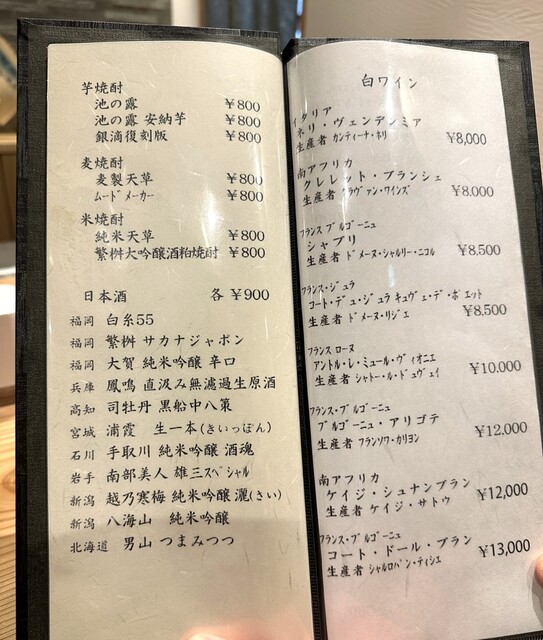 芋焼酎
池の露 ¥800
池の露 安納芋 ¥800
銀滴復刻版 ¥800
麦焼酎
麦製天草 ¥800
ムードメーカー ¥800
米焼酎
純米天草 ¥800
繁桝大吟醸酒粕焼酎 ¥800
日本酒 各 ¥900
福岡 白糸55
福岡 繁桝 サカナジャポン
福岡 大賀 純米吟醸 辛口
兵庫 鳳鳴 直汲み無濾過生原酒
高知 司牡丹 黒船中八策
宮城 浦霞 生一本(きいっぽん)
石川 手取川 純米吟醸 酒魂
岩手 南部美人 雄三スペシャル
新潟 越乃寒梅 純米吟醸 灑(さい)
新潟 八海山 純米吟醸
北海道 男山 つまみつつ
白ワイン
イタリア
ネリ・ヴェンデンミア
生産者 カンティーナ・ネリ ¥8,000
南アフリカ
クレレット・ブランシェ
生産者 クラヴァン・ワインズ ¥8,000
フランス ブルゴーニュ
シャブリ
生産者 ドメーヌ・シャルリー・ニコル ¥8,500
フランス・ジュラ
コート・デュ・ジュラ キュヴェ・デ・ポエット
生産者 ドメーヌ・リジエ ¥8,500
フランス ローヌ
アントル・レ・ミュール・ヴィオニエ
生産者 シャトー・ル・ドゥヴェイ ¥10,000
フランス・ブルゴーニュ
ブルゴーニュ・アリゴテ
生産者 フランソワ・カリヨン ¥12,000
南アフリカ
ケイジ・シュナンブラン
生産者 ケイジ・サトウ ¥12,000
フランス・ブルゴーニュ
コート・ドール・ブラン
生産者 シャルロパン・ティシエ ¥13,000